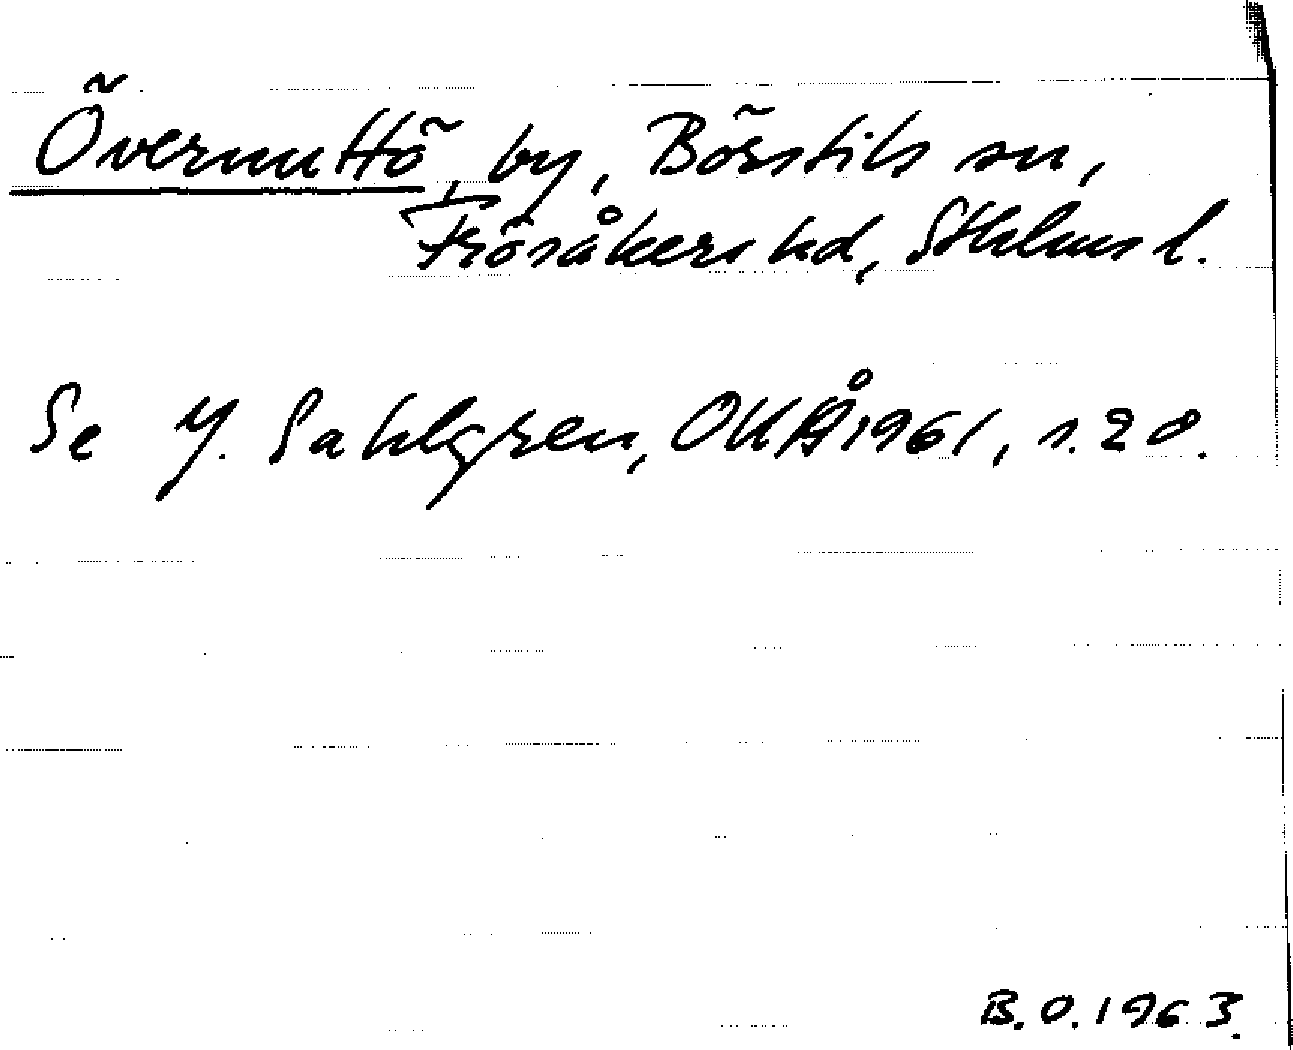 Övermuttö, by, Börstils sn,
Frösåkers hd, Sthlms l.
Se J. Sahlgren, OUÅ 1961, s. 20.
B.O. 1963.